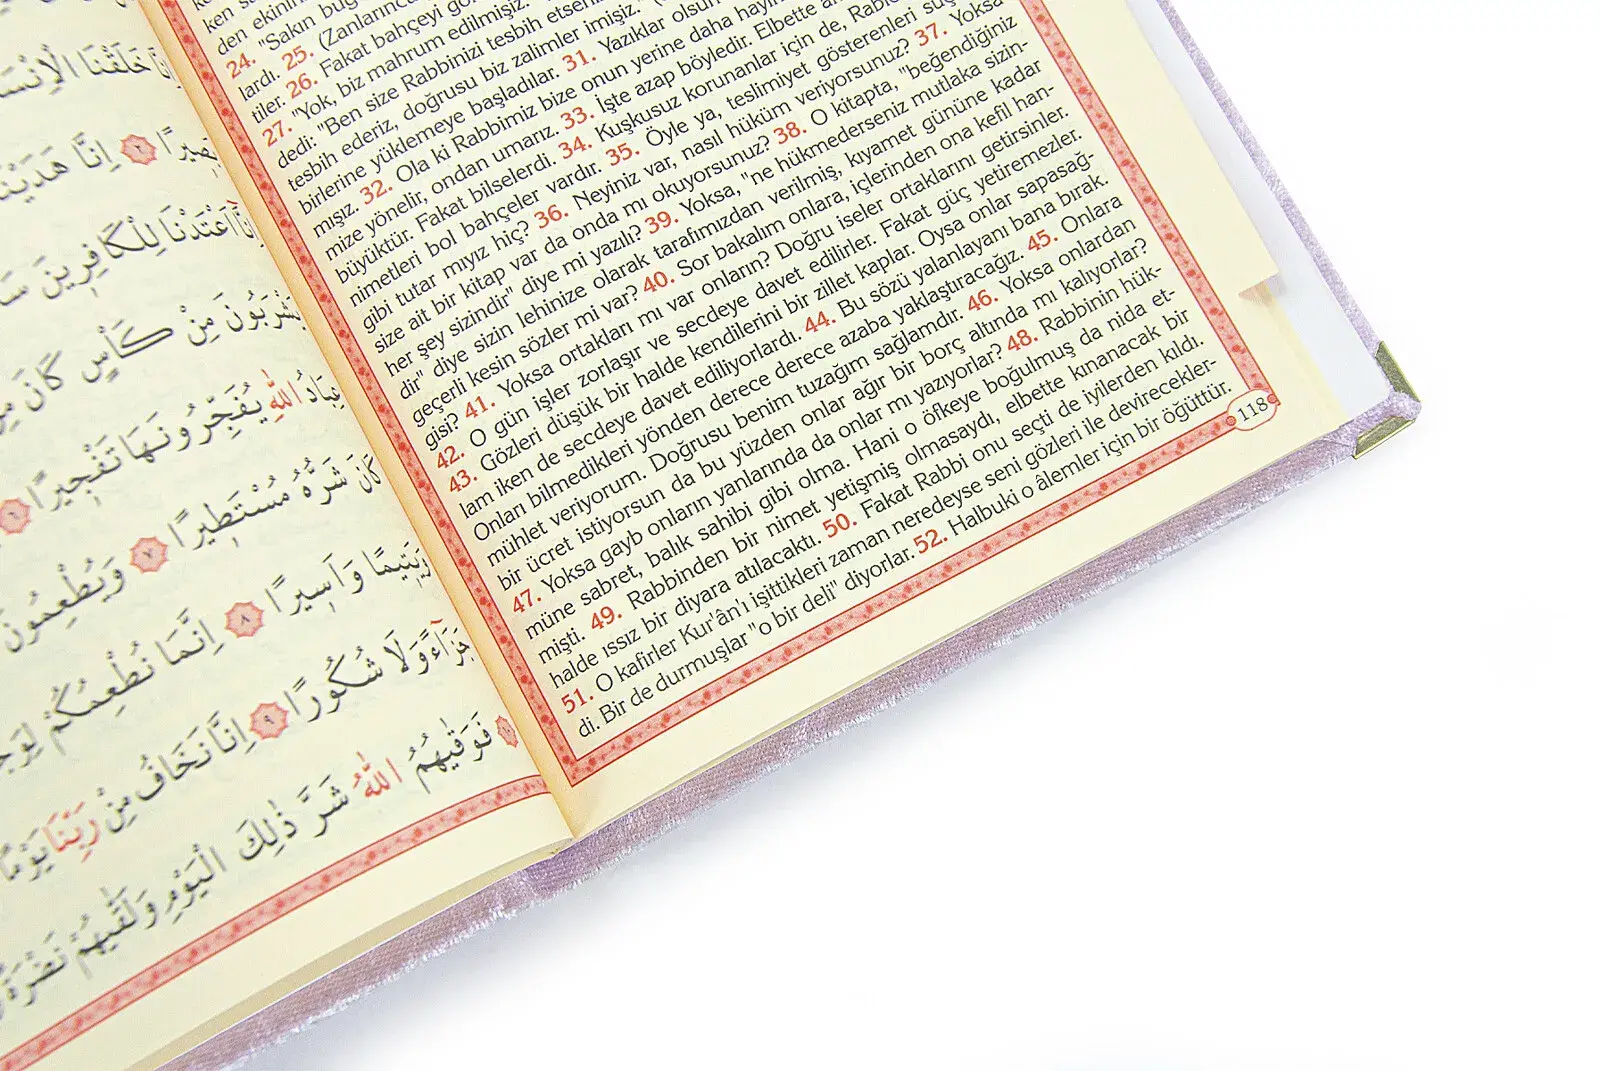 den ekinin
24. "Sakın bug
lardı. 25. (Zanlarınca
tiler. 26. Fakat bahçeyi
27. "Yok, biz mahrum edilmişiz."
dedi: "Ben size Rabbinizi tesbih
tesbih ederiz, doğrusu biz zalimler imişiz."
birlerine yüklemeye başladılar. 31. Yazıklar olsun
mışız. 32. Ola ki Rabbimiz bize onun yerine daha
mize yönelir, ondan umarız. 33. İşte azap böyledir. Elbette
büyüktür. Fakat bilselerdi. 34. Kuşkusuz korunanlar için de,
nimetleri bol bahçeler vardır. 35. Öyle ya, teslimiyet gösterenleri
gibi tutar mıyız hiç? 36. Neyiniz var, nasıl hüküm veriyorsunuz? 37. Yoksa
size ait bir kitap var da onda mı okuyorsunuz? 38. O kitapta, "beğendiğiniz
her şey sizindir" diye mi yazılı? 39. Yoksa, "ne hükmederseniz mutlaka sizin-
dir" diye sizin lehinize olarak tarafımızdan verilmiş, kıyamet gününe kadar
geçerli kesin sözler mi var? 40. Sor bakalım onlara, içlerinden ona kefil han-
gisi? 41. Yoksa ortakları mı var onların? Doğru iseler ortaklarını getirsinler.
42. O gün işler zorlaşır ve secdeye davet edilirler. Fakat güç yetiremezler.
43. Gözleri düşük bir halde kendilerini bir zillet kaplar. Oysa onlar sapasağ-
lam iken de secdeye davet ediliyorlardı. 44. Bu sözü yalanlayanı bana bırak.
Onları bilmedikleri yönden derece derece azaba yaklaştıracağız. 45. Onlara
mühlet veriyorum. Doğrusu benim tuzağım sağlamdır. 46. Yoksa onlardan
bir ücret istiyorsun da bu yüzden onlar ağır bir borç altında mı kalıyorlar?
47. Yoksa gayb onların yanlarında da onlar mı yazıyorlar? 48. Rabbinin hük-
müne sabret, balık sahibi gibi olma. Hani o öfkeye boğulmuş da nida et-
mişti. 49. Rabbinden bir nimet yetişmiş olmasaydı, elbette kınanacak bir
halde ıssız bir diyara atılacaktı. 50. Fakat Rabbi onu seçti de iyilerden kıldı.
51. O kafirler Kur'ân'ı işittikleri zaman neredeyse seni gözleri ile devirecekler-
di. Bir de durmuşlar "o bir deli" diyorlar. 52. Halbuki o âlemler için bir öğüttür.
118
خَلَقْنَا الْاِنْسَا
بَصِيرًا ٢ اِنَّا هَدَيْنَا
اَعْتَدْنَا لِلْكَافِرِينَ سَ
يَشْرَبُونَ مِنْ كَأْسٍ كَانَ مِ
عِبَادُ اللّٰهِ يُفَجِّرُونَهَا تَفْجِيرًا ٦
كَانَ شَرُّهُ مُسْتَطِيرًا ٧ وَيُطْعِمُونَ
وَيَتِيمًا وَاَسِيرًا ٨ اِنَّمَا نُطْعِمُكُمْ لِوَجْ
جَزَٓاءً وَلَا شُكُورًا ٩ اِنَّا نَخَافُ مِنْ رَبِّنَا يَوْمًا
١٠ فَوَقٰيهُمُ اللّٰهُ شَرَّ ذٰلِكَ الْيَوْمِ وَلَقّٰيهُمْ نَضْرَةً